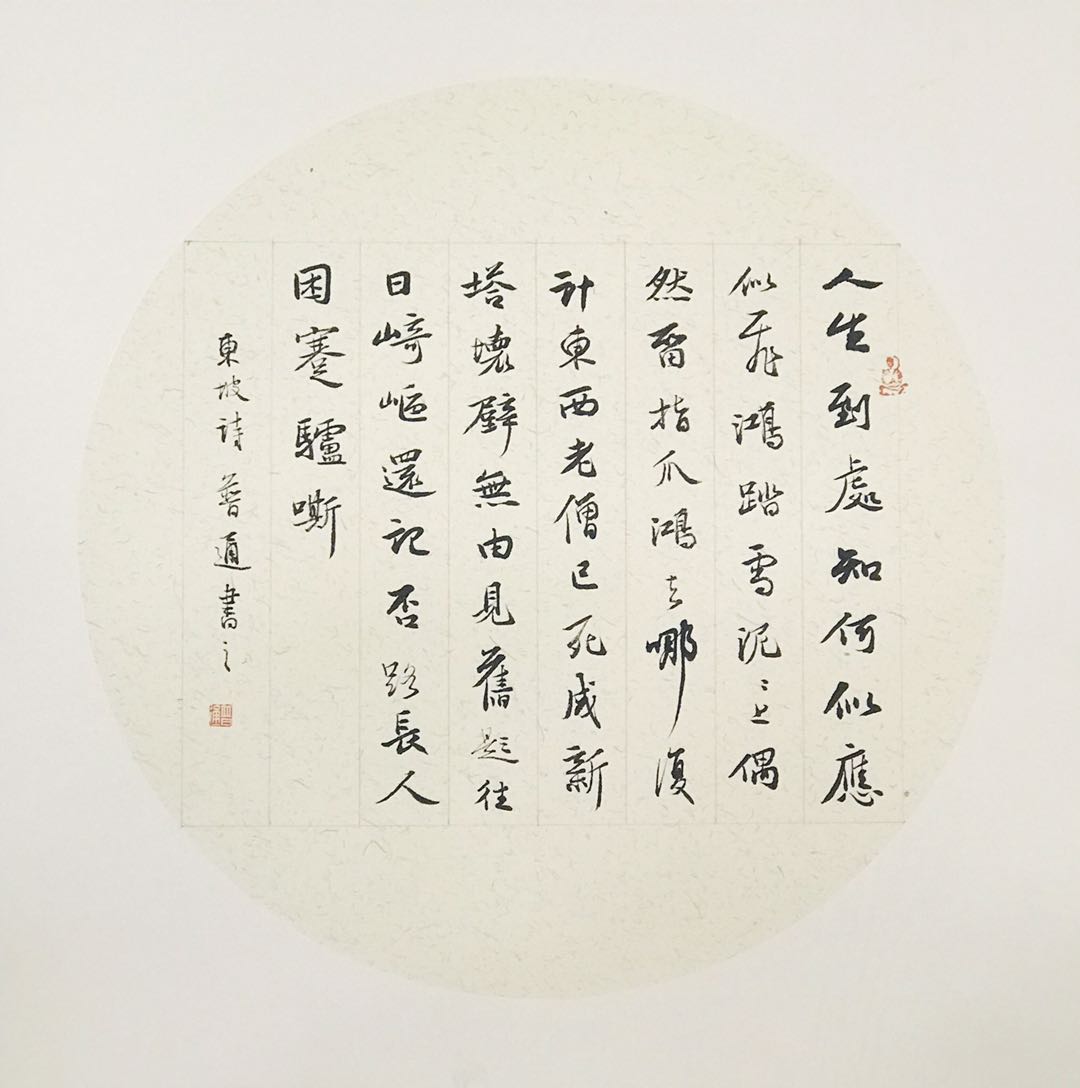 人生到處知何似應
似飛鴻踏雪泥〻上偶
然留指爪鴻去哪復
計東西老僧已死成新
塔壞壁無由見舊題往
日崎嶇還記否路長人
困蹇驢嘶
東坡詩 普通書之